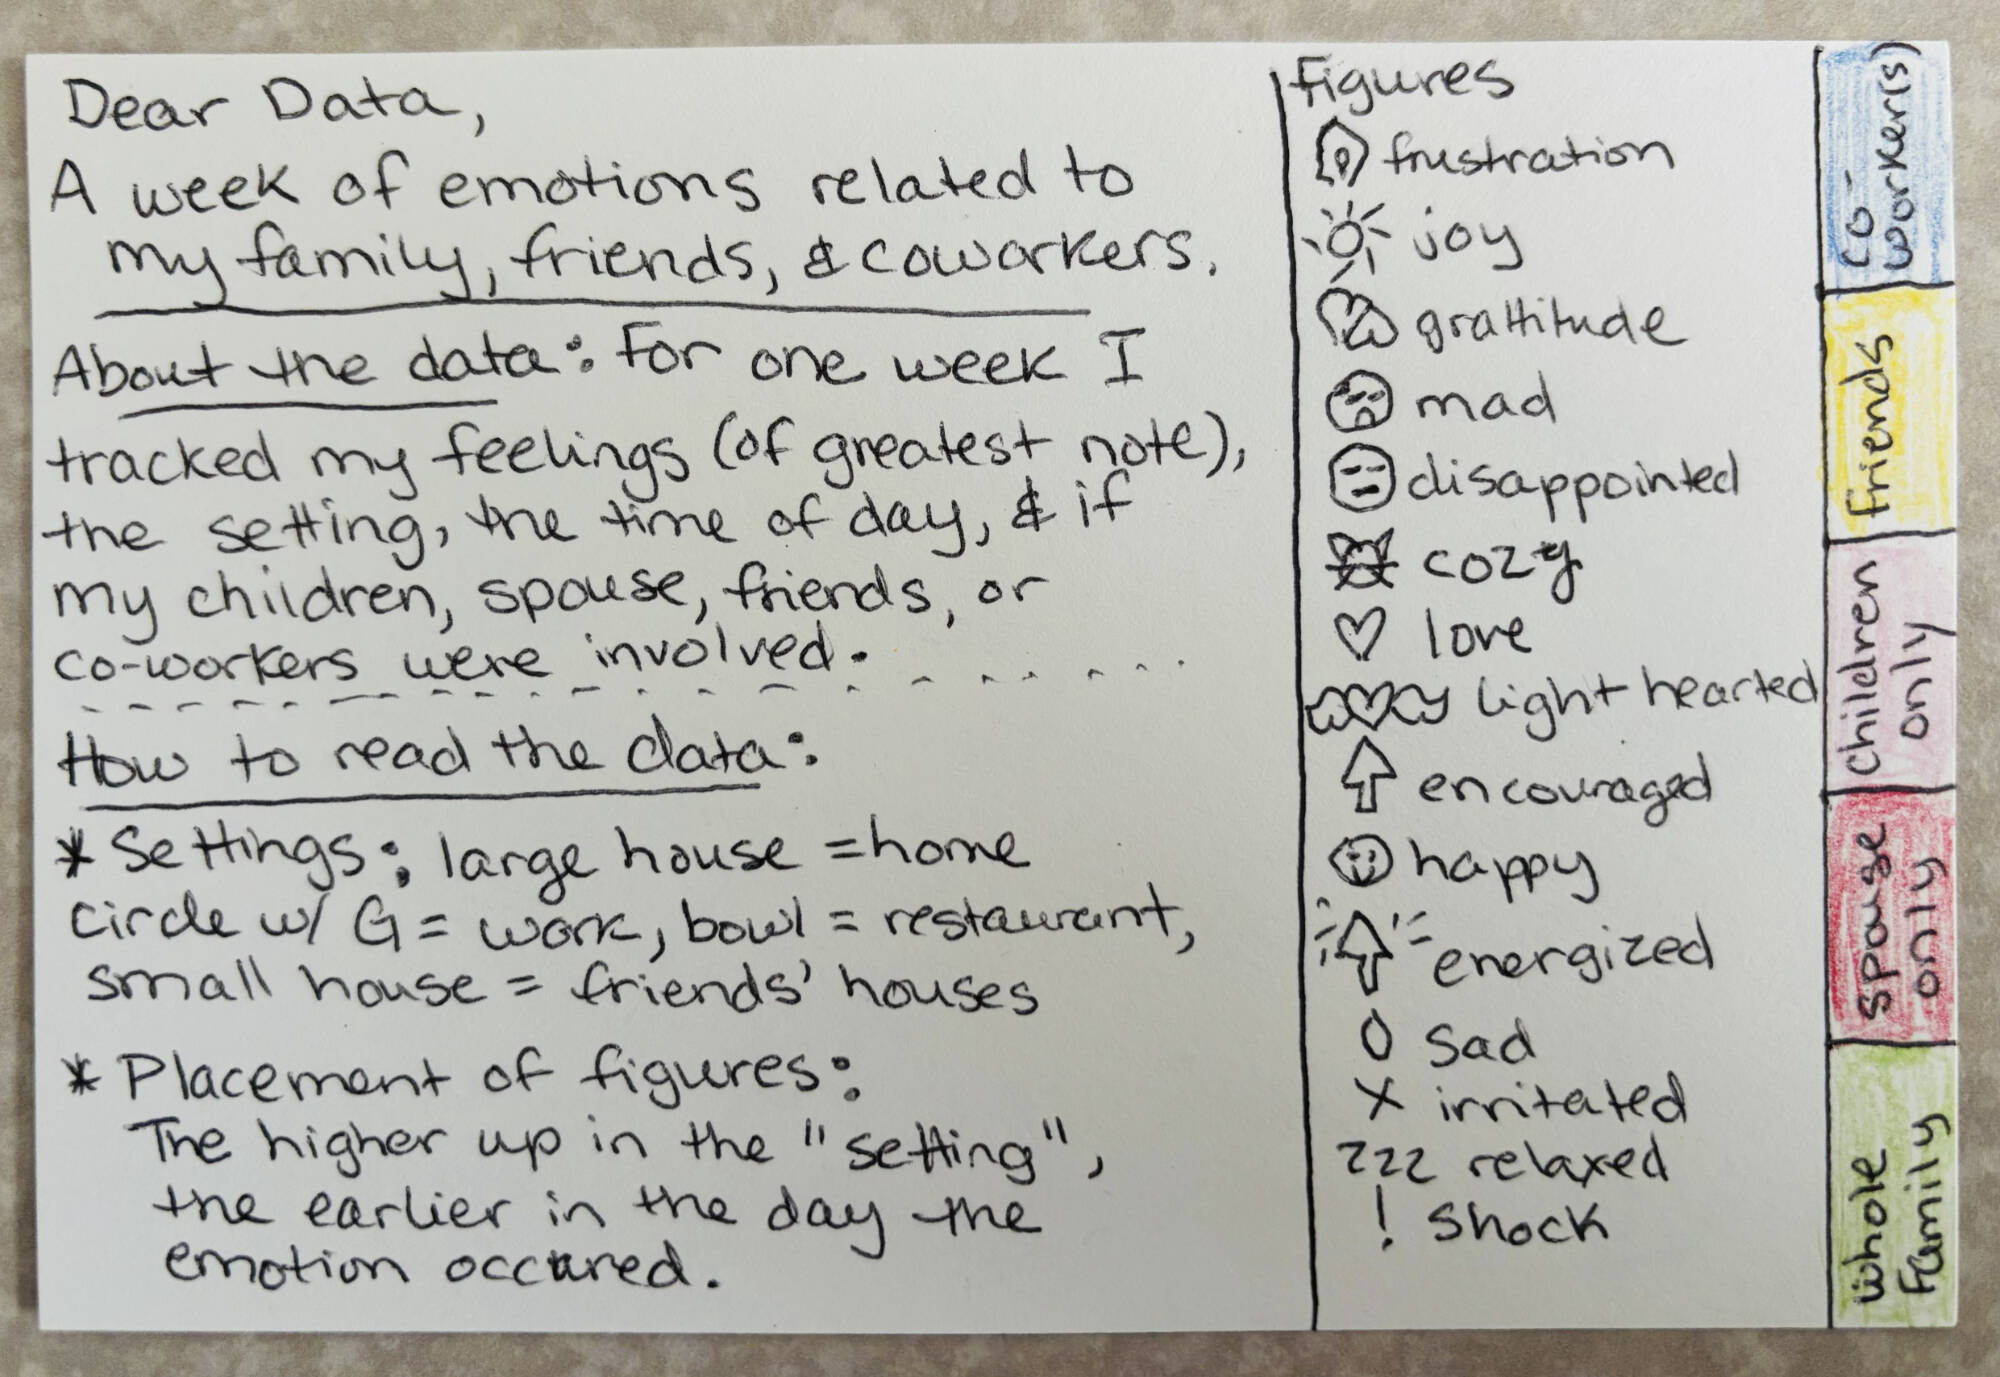 Dear Data,
A week of emotions related to
my family, friends, & coworkers.
About the data: For one week I
tracked my feelings (of greatest note),
the setting, the time of day, & if
my children, spouse, friends, or
co-workers were involved.
How to read the data:
* Settings: large house = home
circle w/ G = work, bowl = restaurant,
small house = friends' houses
* Placement of figures:
The higher up in the "setting",
the earlier in the day the
emotion occured.
figures
frustration
joy
grattitude
mad
disappointed
cozy
love
light hearted
encouraged
happy
energized
sad
X irritated
zzz relaxed
! shock
co-
worker(s)
friends
children
only
spouse
only
whole
family